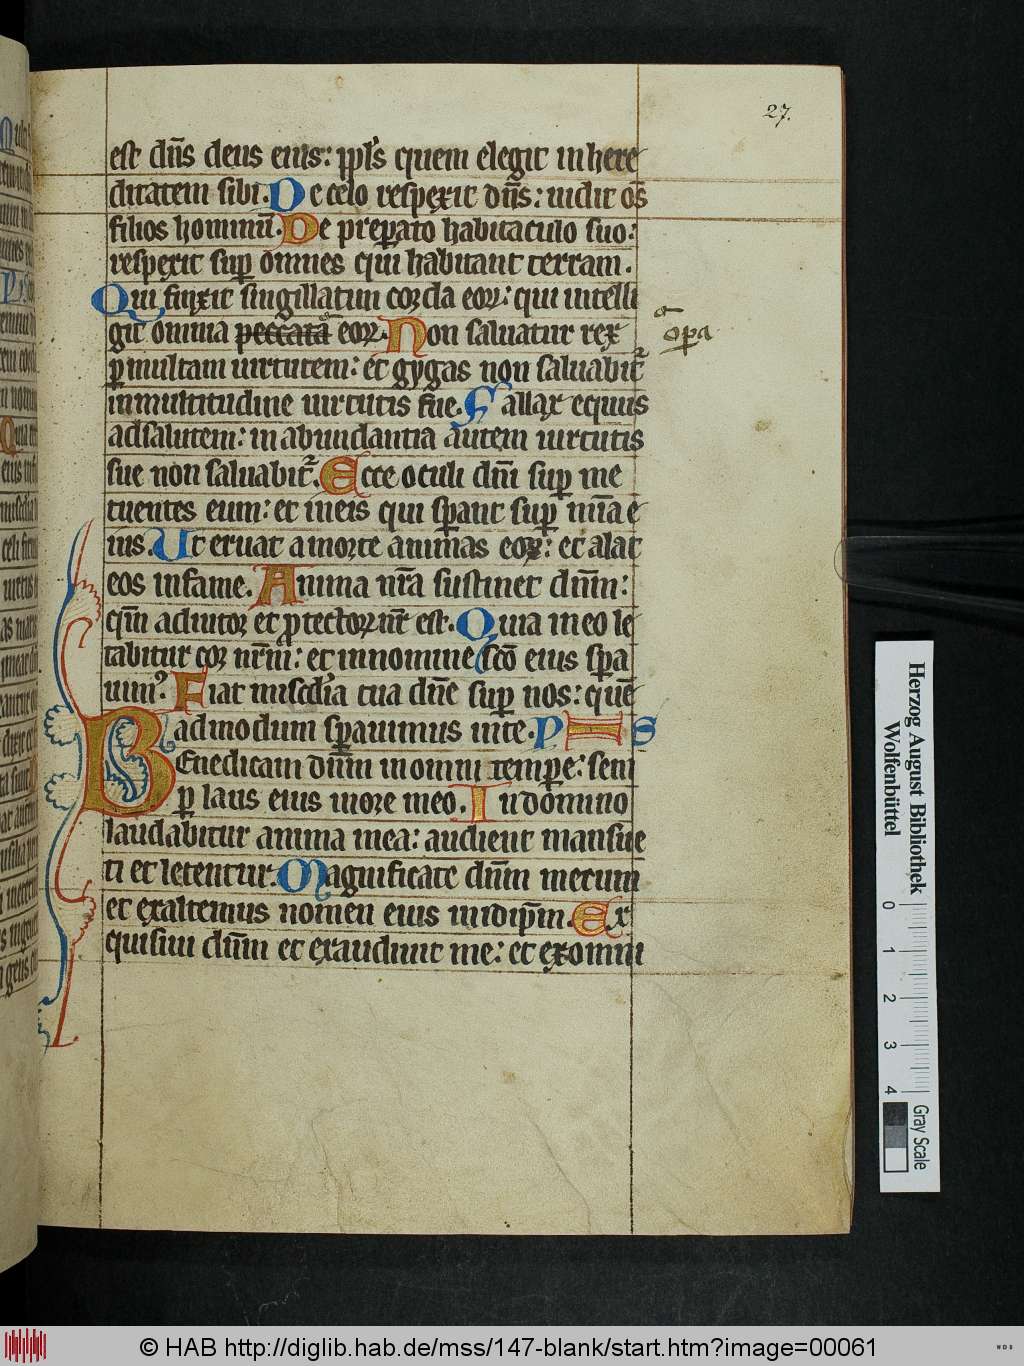 27.
est dn̄s deus eius: ppl̄s quem elegit in here
ditatem sibi. De celo respexit dn̄s: uidit om̄s
filios hominū. De preparato habitaculo suo:
respexit sup̄ omnes qui habitant terram.
Qui finxit singillatim corda eoꝝ: qui intelli
git omnia peccata eoꝝ. Non saluatur rex
opa
ꝑ multam uirtutem: et gygas non saluabit᷑
in multitudine uirtutis sue. Fallax equus
ad salutem: in abundantia autem uirtutis
sue non saluabit᷑. Ecce oculi dn̄i sup̄ me
tuentes eum: et in eis qui sꝑant sup̄ mīa e
ius. Ut eruat a morte animas eoꝝ: et alat
eos in fame. Anima nr̄a sustinet dn̄m:
qm̄ adiutor et ꝓtector nr̄ est. Quia in eo le
tabitur cor nr̄m: et in nomine sc̄o eius sꝑa
uim᷒. Fiat misc̄dia tua dn̄e sup̄ nos: quē
admodum sꝑauimus in te. PS
Benedicam dn̄m in omni tempe: semꝑ
laus eius in ore meo. In domino
laudabitur anima mea: audient mansue
ti et letentur. Magnificate dn̄m mecum
et exaltemus nomen eius in idip̄m. Ex
quisiui dn̄m et exaudiuit me: et ex omni
Herzog August Bibliothek
Wolfenbüttel
0 1 2 3 4
Gray Scale
© HAB http://diglib.hab.de/mss/147-blank/start.htm?image=00061